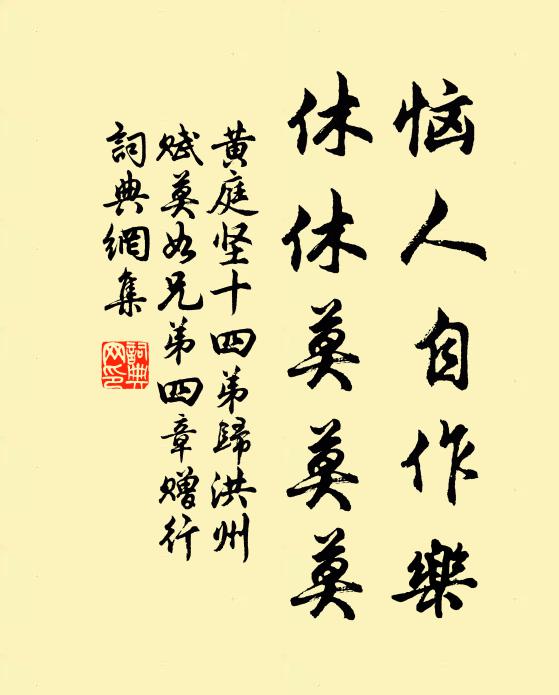 恼人自作樂
休休莫莫莫
黄庭坚十四弟歸洪州
赋莫如兄弟四章赠行
詞典網集
詞典网印